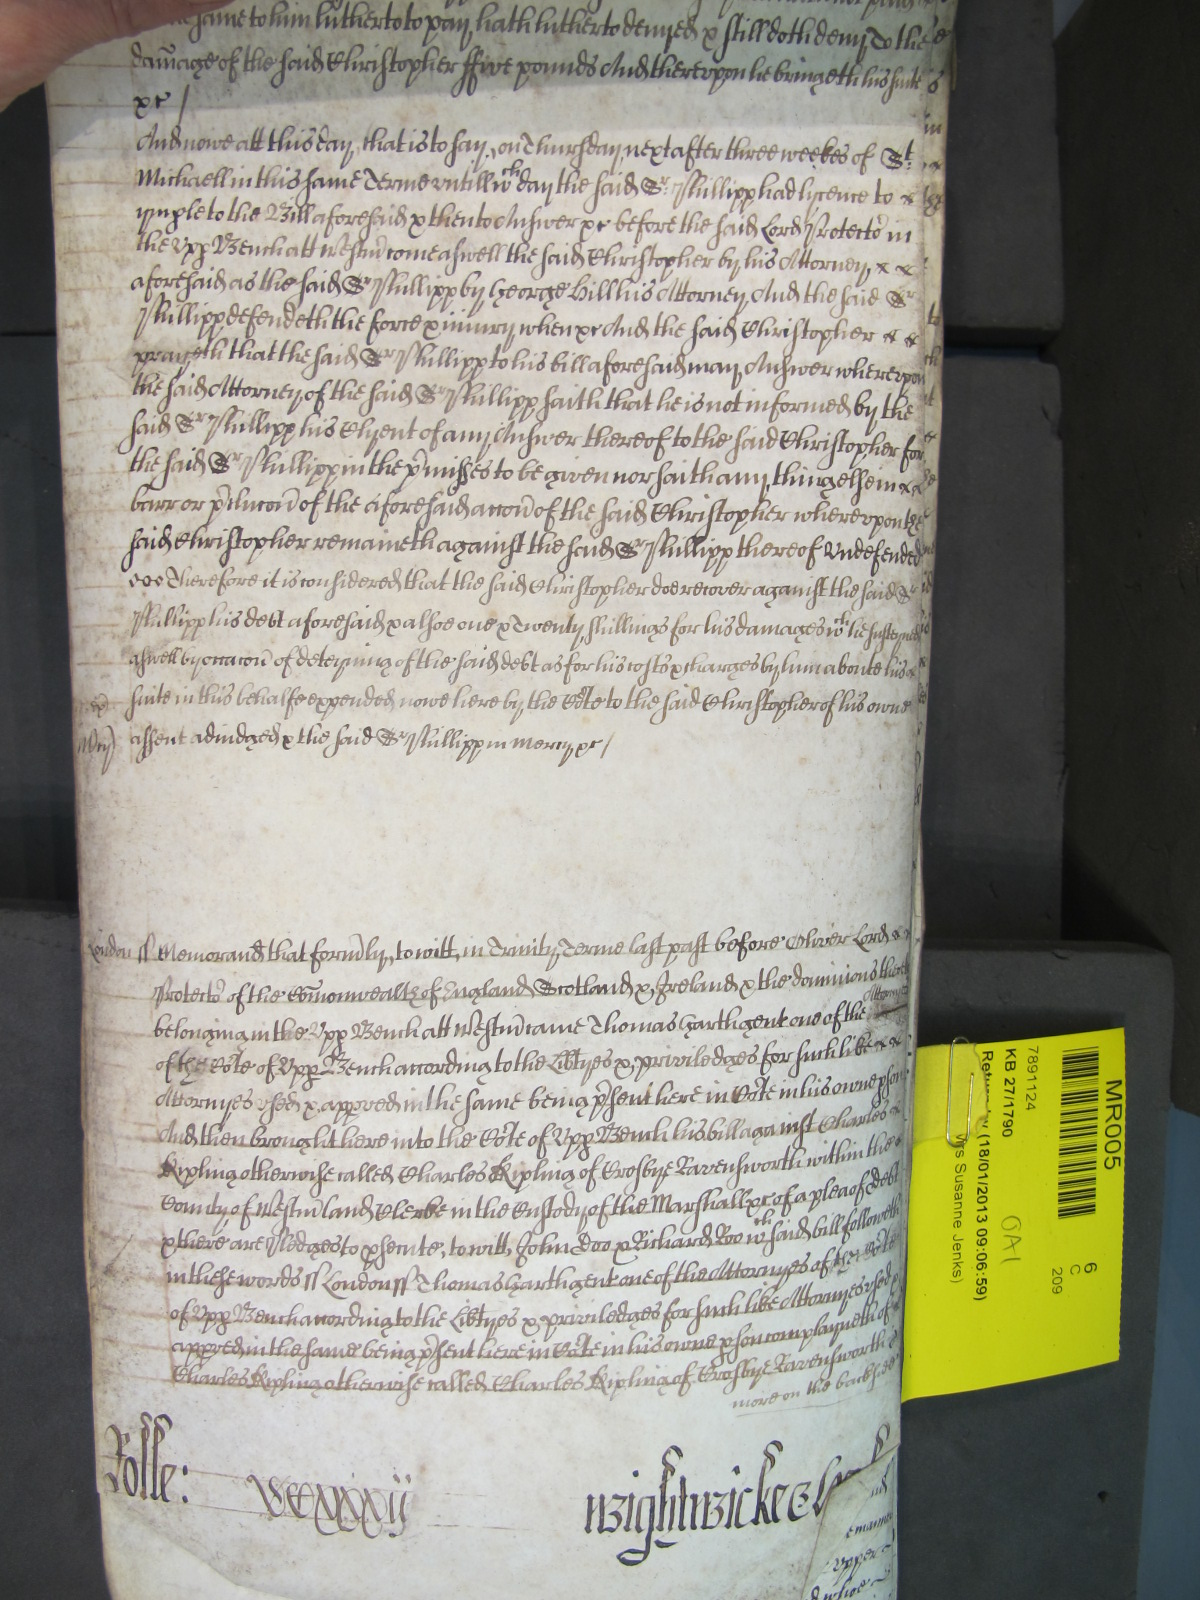 same to him hitherto to pay, hath hitherto denyed & still doth deny To the
damage of the said Christopher ffive pounds And therevpon he bringeth his suite
&c /
And nowe att this day, that is to say, on Thursday next after three weekes of St
Michaell in this same Terme vntill wch day the said Sr Phillipp had lycence to
ymple to the Bill aforesaid & then to Answer &c before the said Lord Protector in
the Vpp Bench att Westm come aswell the said Christopher by his Attorney
aforesaid as the said Sr Phillipp by George Hill his Attorney And the said Sr
Phillipp defendeth the force & iniury when &c And the said Christopher
prayeth that the said Sr Phillipp to his bill aforesaid may Answer wherevpon
the said Attorney of the said Sr Phillipp saith that he is not informed by the
said Sr Phillipp his Clyent of any Answer thereof to the said Christopher for
the said Sr Phillipp in the pmisses to be given nor saith any thing else in
barr or pclucon of the aforesaid accon of the said Christopher wherevpon the
said Christopher remaineth against the said Sr Phillipp thereof Vndefended
Therefore it is considered that the said Christopher doe recover against the said Sr
Phillipp his debt aforesaid & alsoe one & Twenty shillings for his damages wch he susteyned
aswell by occacon of deteyning of the said debt as for his costs & charges by him aboute his
suite in this behalfe expended nowe here by the Cote to the said Christopher of his owne
assent adiudged & the said Sr Phillipp in mercy &c /
London ss Memorand that formly, to witt, in Trinity Terme last past before Oliver Lord
Protector of the Comonwealth of England Scotland & Ireland & the dominions
belonging in the Vpp Bench att Westm came Thomas Garth gent one of the Attornyes
of the Cote of Vpp Bench according to the Libtyes & priviledges for such like
Attornyes vsed & appved in the same being psent here in Cote in his owne pson
And then brought here into the Cote of Vpp Bench his bill against Charles
Kipling otherwise called Charles Kipling of Crosbye Ravensworth within the
County of Westmland Clerke in the Custody of the Marshall &c of a plea of debt
& there are Pledges to psecute, to witt, John Doo & Richard Roo wch said bill followeth
in these words ss London ss Thomas Garth gent one of the Attornyes of the Cote
of Vpp Bench according to the Libtyes & priviledges for such like Attornyes vsed &
appved in the same being psent here in Cote in his owne pson complayneth of
Charles Kipling otherwise called Charles Kipling of Crosbye Ravensworth
more on the backside
Rolle:
Wightwicke
vpper
MR005
7891124
KB 27/1790
(18/01/2013 09:06:59)
Mrs Susanne Jenks)
OA1
6
C
209